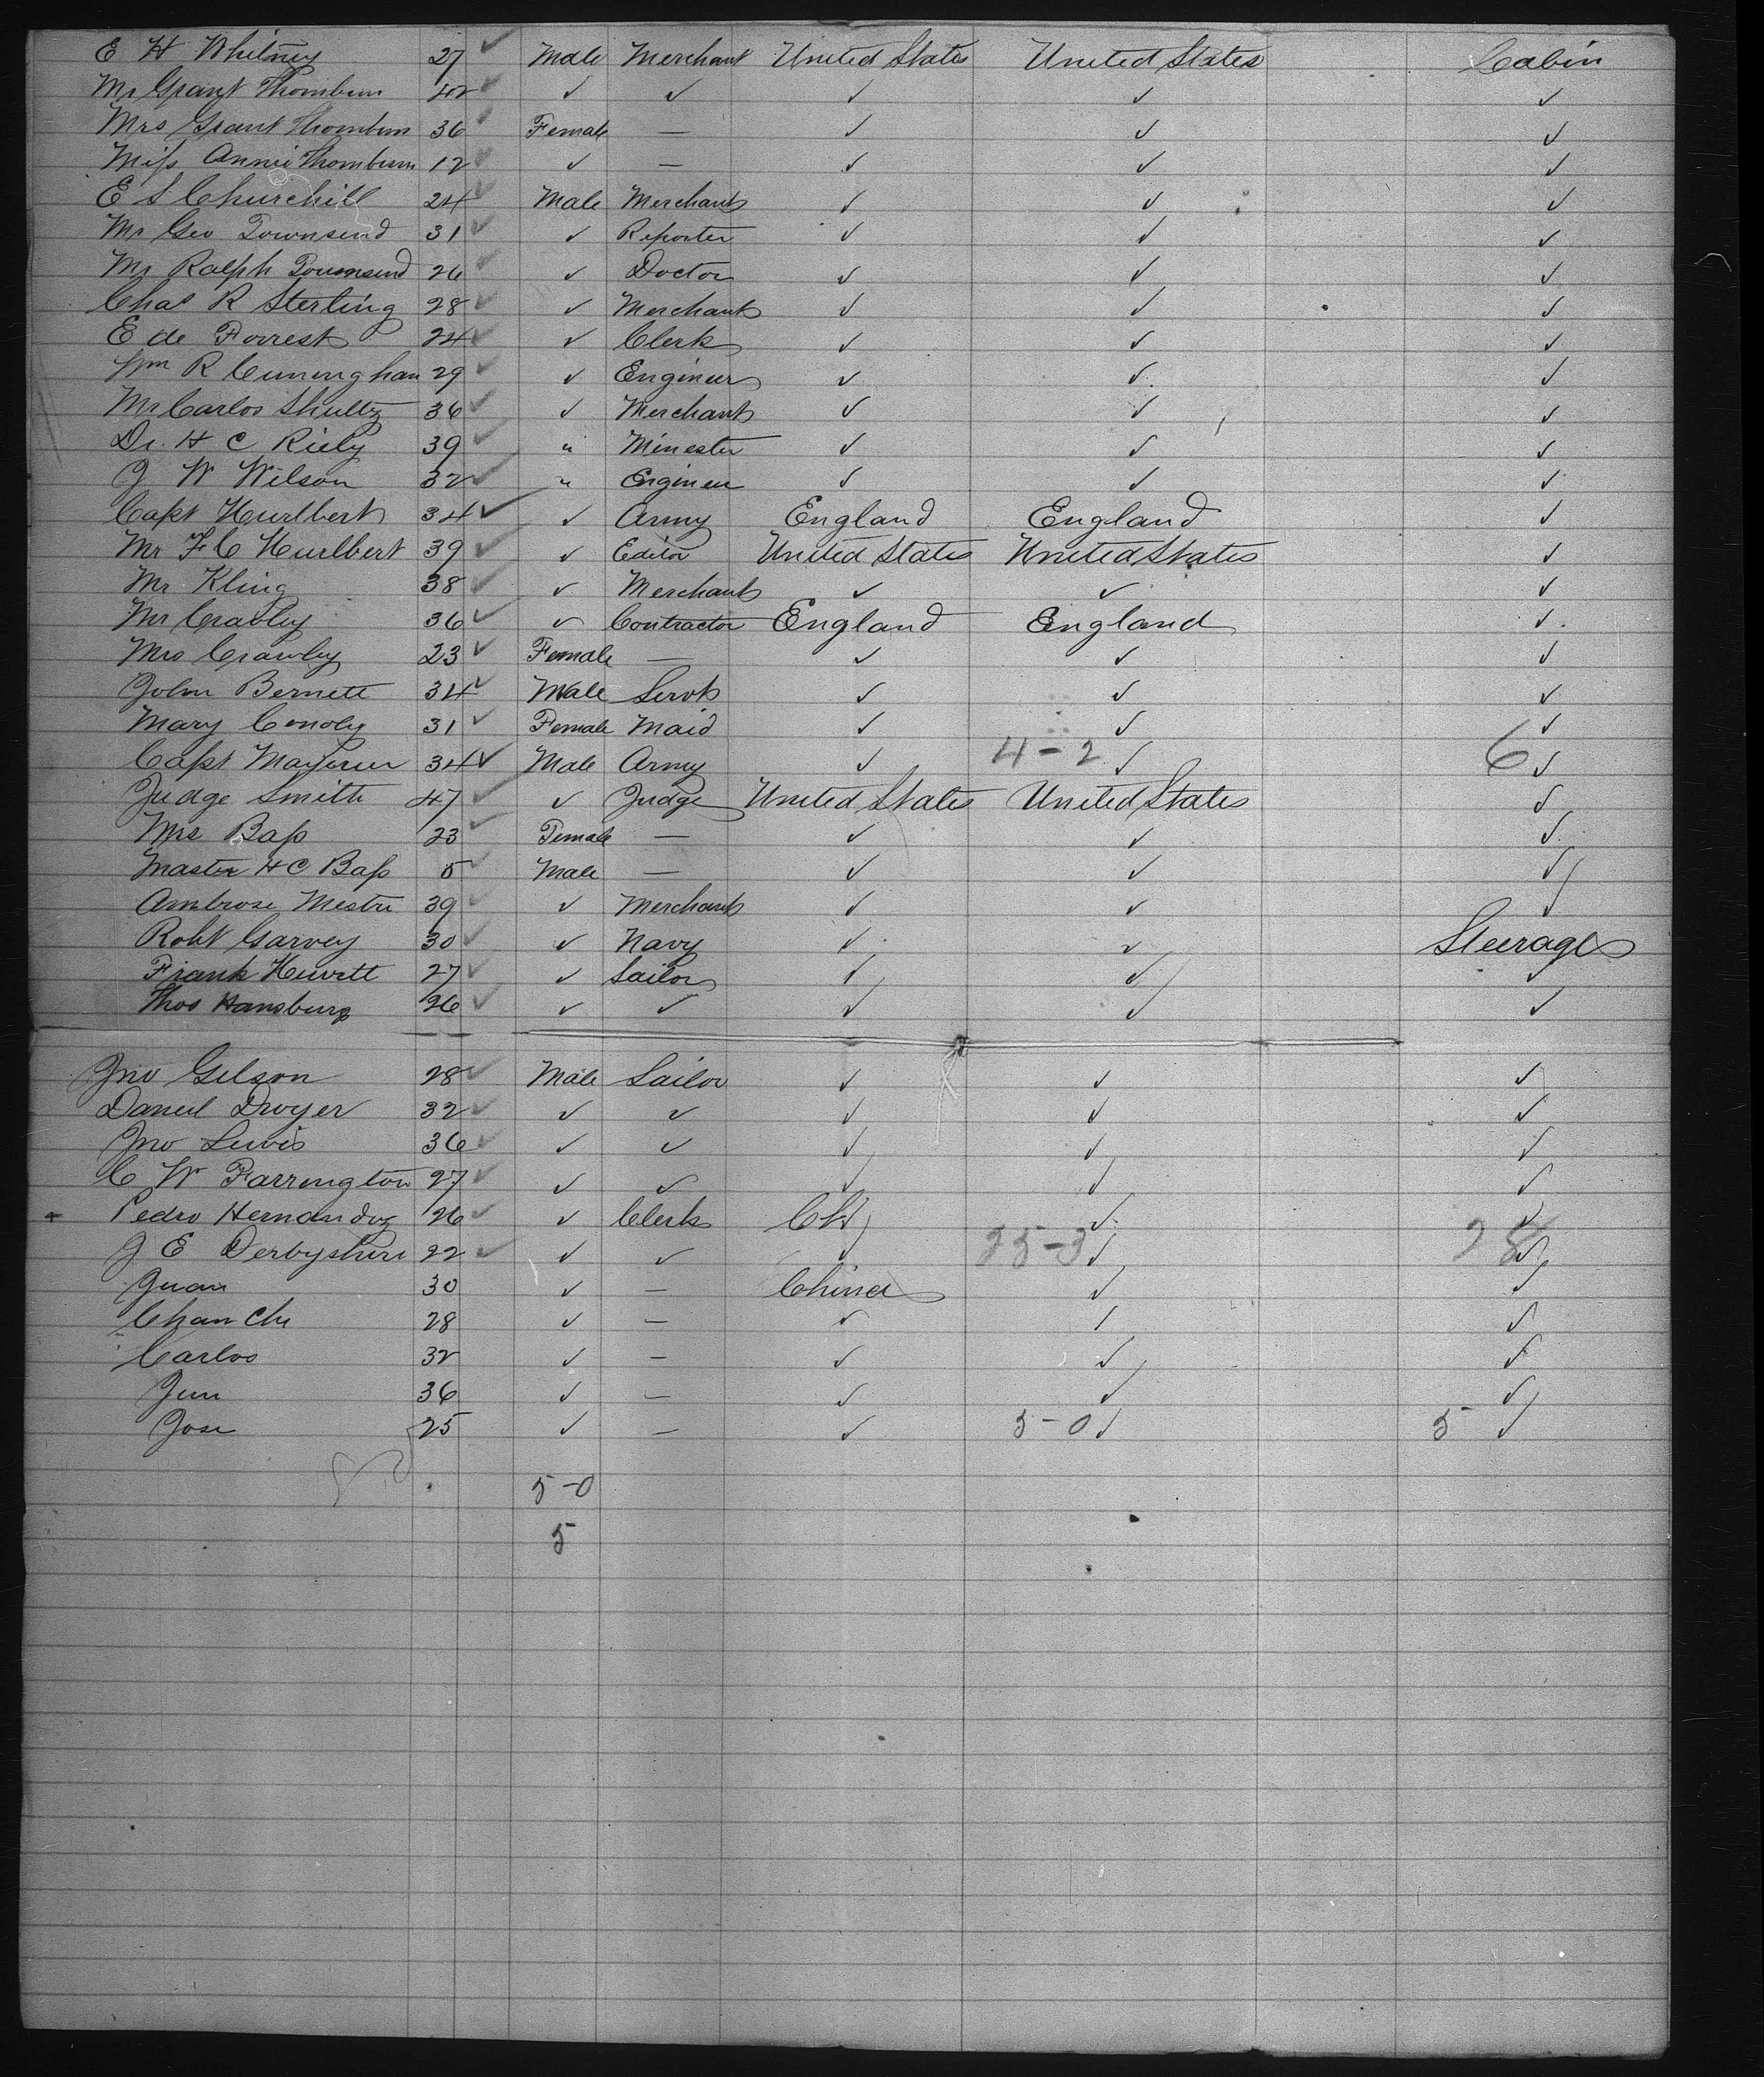 E H Whitney 27 ✓ Male Merchant United States United States Cabin
Mr Grant Thornburn 42 ✓ ✓ ✓ ✓ ✓ ✓
Mrs Grant Thornburn 36 ✓ Female — ✓ ✓ ✓
Miss Annie Thornburn 12 ✓ ✓ — ✓ ✓ ✓
E S Churchill 24 ✓ Male Merchant ✓ ✓ ✓
Mr Geo Townsend 31 ✓ ✓ Reporter ✓ ✓ ✓
Mr Ralph Townsend 26 ✓ ✓ Doctor ✓ ✓ ✓
Chas R Sterling 28 ✓ ✓ Merchant ✓ ✓ ✓
E de Forrest 24 ✓ ✓ Clerk ✓ ✓ ✓
Wm R Cuningham 29 ✓ ✓ Engineer ✓ ✓ ✓
Mr Carlos Shultz 36 ✓ ✓ Merchant ✓ ✓ ✓
Dr. H C Riely 39 ✓ " Minester ✓ ✓ ✓
J W Wilson 32 ✓ " Engineer ✓ ✓ ✓
Capt Hurlbert 34 ✓ ✓ Army England England ✓
Mr F C Hurlbert 39 ✓ ✓ Editor United States United States ✓
Mr Kling 38 ✓ ✓ Merchant ✓ ✓ ✓
Mr Crawley 36 ✓ ✓ Contractor England England ✓
Mrs Crawley 23 ✓ Female — ✓ ✓ ✓
John Bernett 34 ✓ Male Servt ✓ ✓ ✓
Mary Conoly 31 ✓ Female Maid ✓ ✓ ✓
Capt 34 ✓ Male Army ✓ 4-2 ✓ 6 ✓
Judge Smith 47 ✓ ✓ Judge United States United States ✓
Mrs Bass 23 ✓ Female — ✓ ✓ ✓
Master H C Bass 5 ✓ Male — ✓ ✓ ✓
Ambrose Mestre 39 ✓ ✓ Merchant ✓ ✓ ✓
Robt Garvey 30 ✓ ✓ Navy ✓ ✓ Steerage
Frank Hewett 27 ✓ ✓ Sailor ✓ ✓ ✓
Thos Hansburg 26 ✓ ✓ ✓ ✓ ✓ ✓
Jno Gelson 28 ✓ Male Sailor ✓ ✓ ✓
Daniel Dwyer 32 ✓ ✓ ✓ ✓ ✓ ✓
Jno Lewis 36 ✓ ✓ ✓ ✓ ✓ ✓
C W Farrington 27 ✓ ✓ ✓ ✓ ✓ ✓
Pedro Hernandez 26 ✓ ✓ Clerk ✓ ✓
J E Derbyshire 22 ✓ ✓ ✓ ✓ 25-3 ✓ 28 ✓
Juan 30 ✓ — China ✓ ✓
Chan Che 28 ✓ — ✓ ✓ ✓
Carlos 32 ✓ — ✓ ✓ ✓
Jun 36 ✓ — ✓ ✓ ✓
Jose 25 ✓ — ✓ 5-0 ✓ 5 ✓
5-0
5